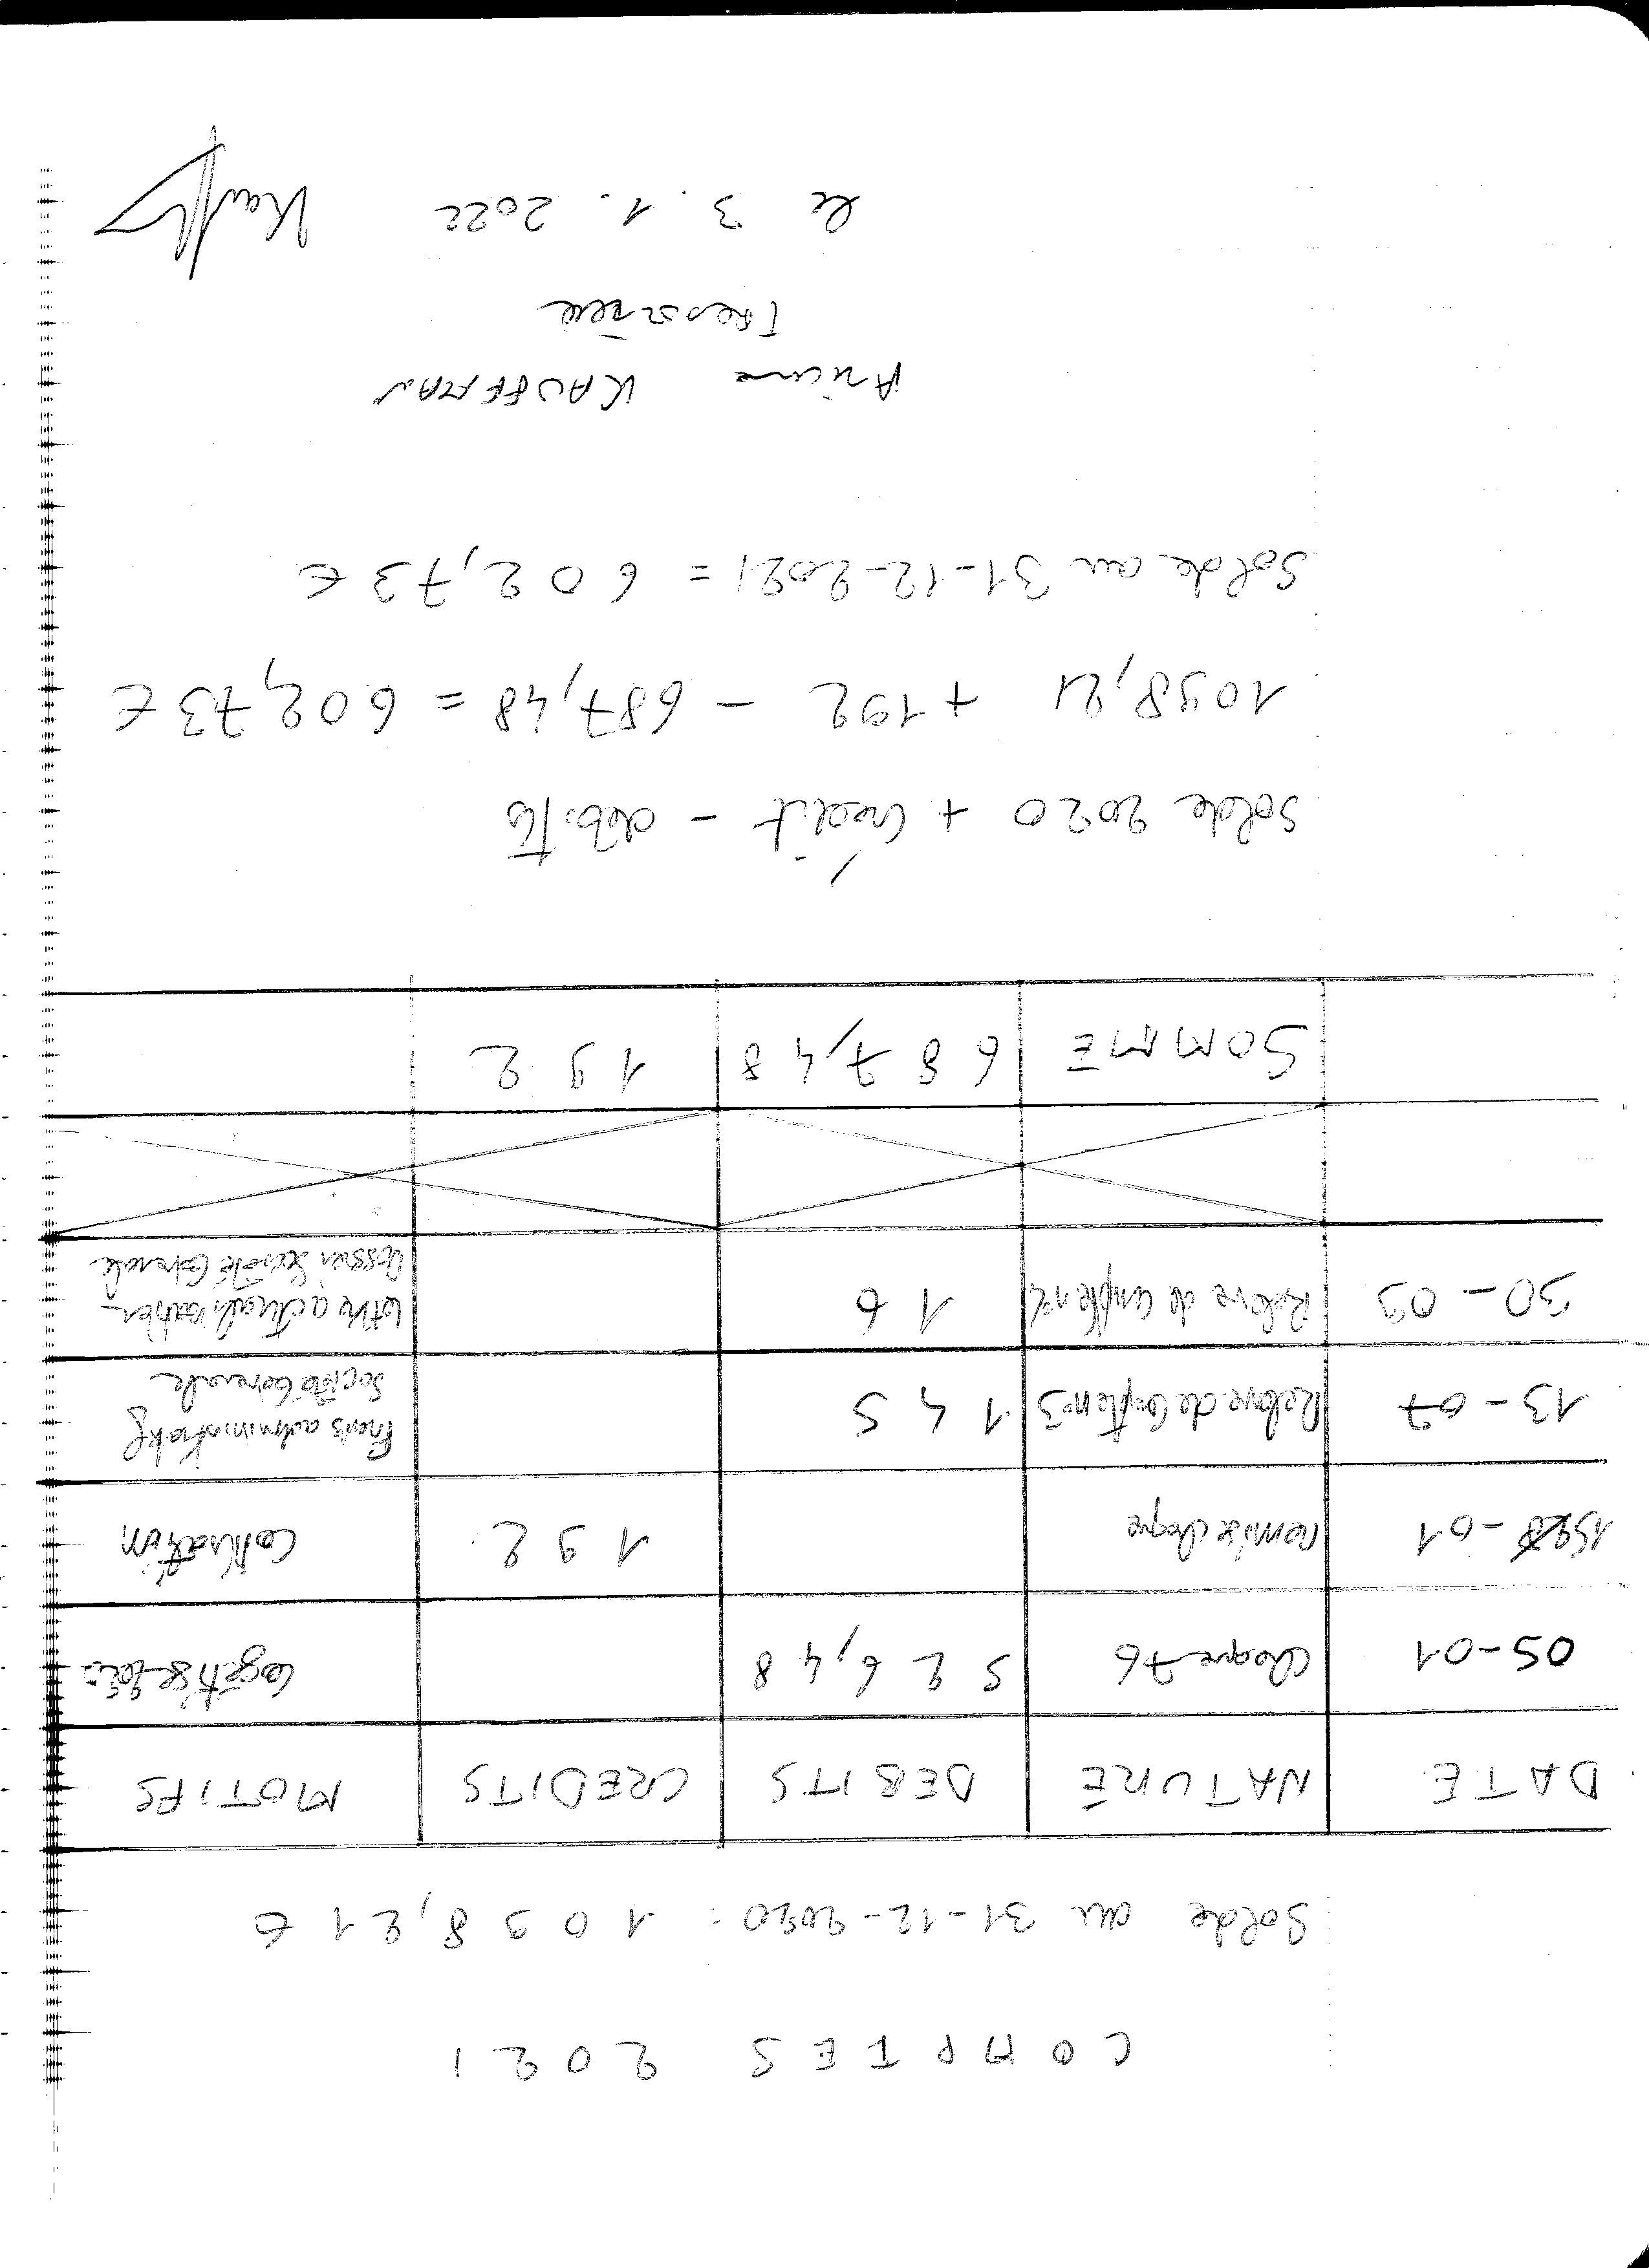 COMPTES 2021
Solde au 31-12-2020 : 1098,21 €
DATE NATURE DEBITS CREDITS MOTIFS
05-01 Chèque 76 526,48
15-01 remise chèque 192 Cotisation
13-07 Relevé de compte n°3 145 Frais administratifs
Société Générale
30-09 Relevé de compte n°4 16 lettre actualisation
dossier Société Générale
SOMME 687,48 192
Solde 2020 + Crédit - débits
1098,21 + 192 - 687,48 = 602,73 €
Solde au 31-12-2021 = 602,73 €
KAUFFMAN
Trésorière
le 3.1.2022